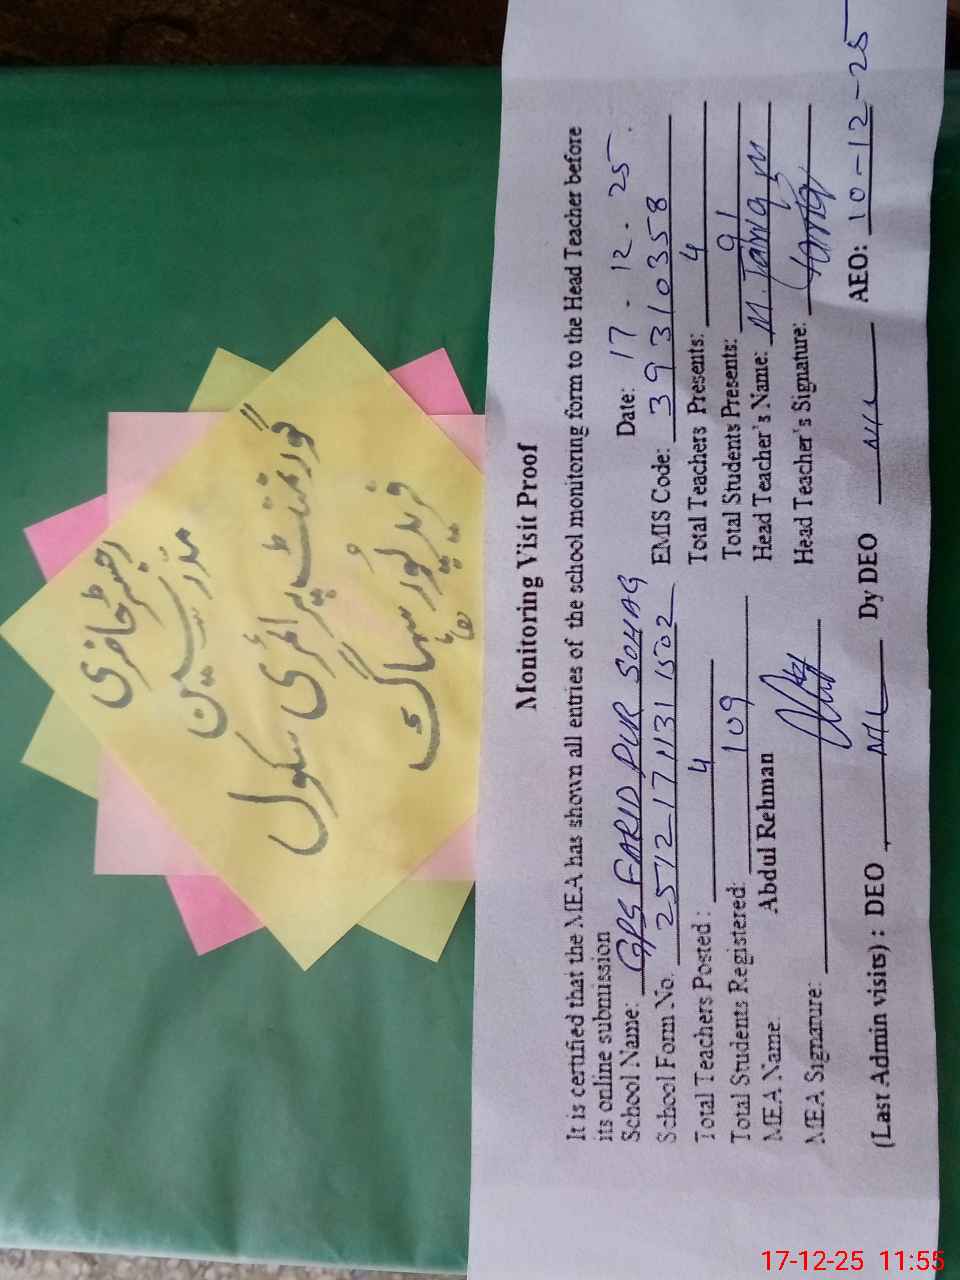 رجسٹر حاضری
مدرسین
گورنمنٹ پرائمری سکول
فرید پور سہاگ
Monitoring Visit Proof
It is certified that the MEA has shown all entries of the school monitoring form to the Head Teacher before
its online submission
Date: 17 - 12 . 25 .
School Name: GPS FARID PUR SOHAG
EMIS Code: 39310358
School Form No. 2512171131 1502
Total Teachers Presents: 4
Total Teachers Posted : 4
Total Students Presents: 91
Total Students Registered: 109
Head Teacher's Name: M. Tariq
MEA Name. Abdul Rehman
Head Teacher's Signature:
MEA Signature:
(Last Admin visits) : DEO NIL Dy DEO NIL AEO: 10-12-25
17-12-25 11:55